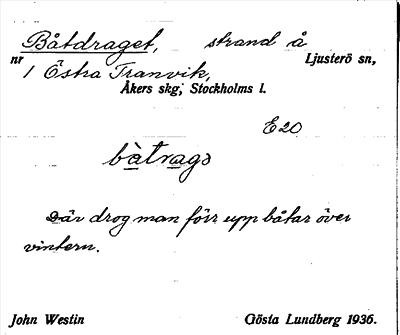 Båtdraget, strand å
Ljusterö sn,
nr 1 Östra Tranvik,
Åkers skg, Stockholms l.
E20
bàtrags
Där drog man förr upp båtar över
vintern.
John Westin Gösta Lundberg 1936.